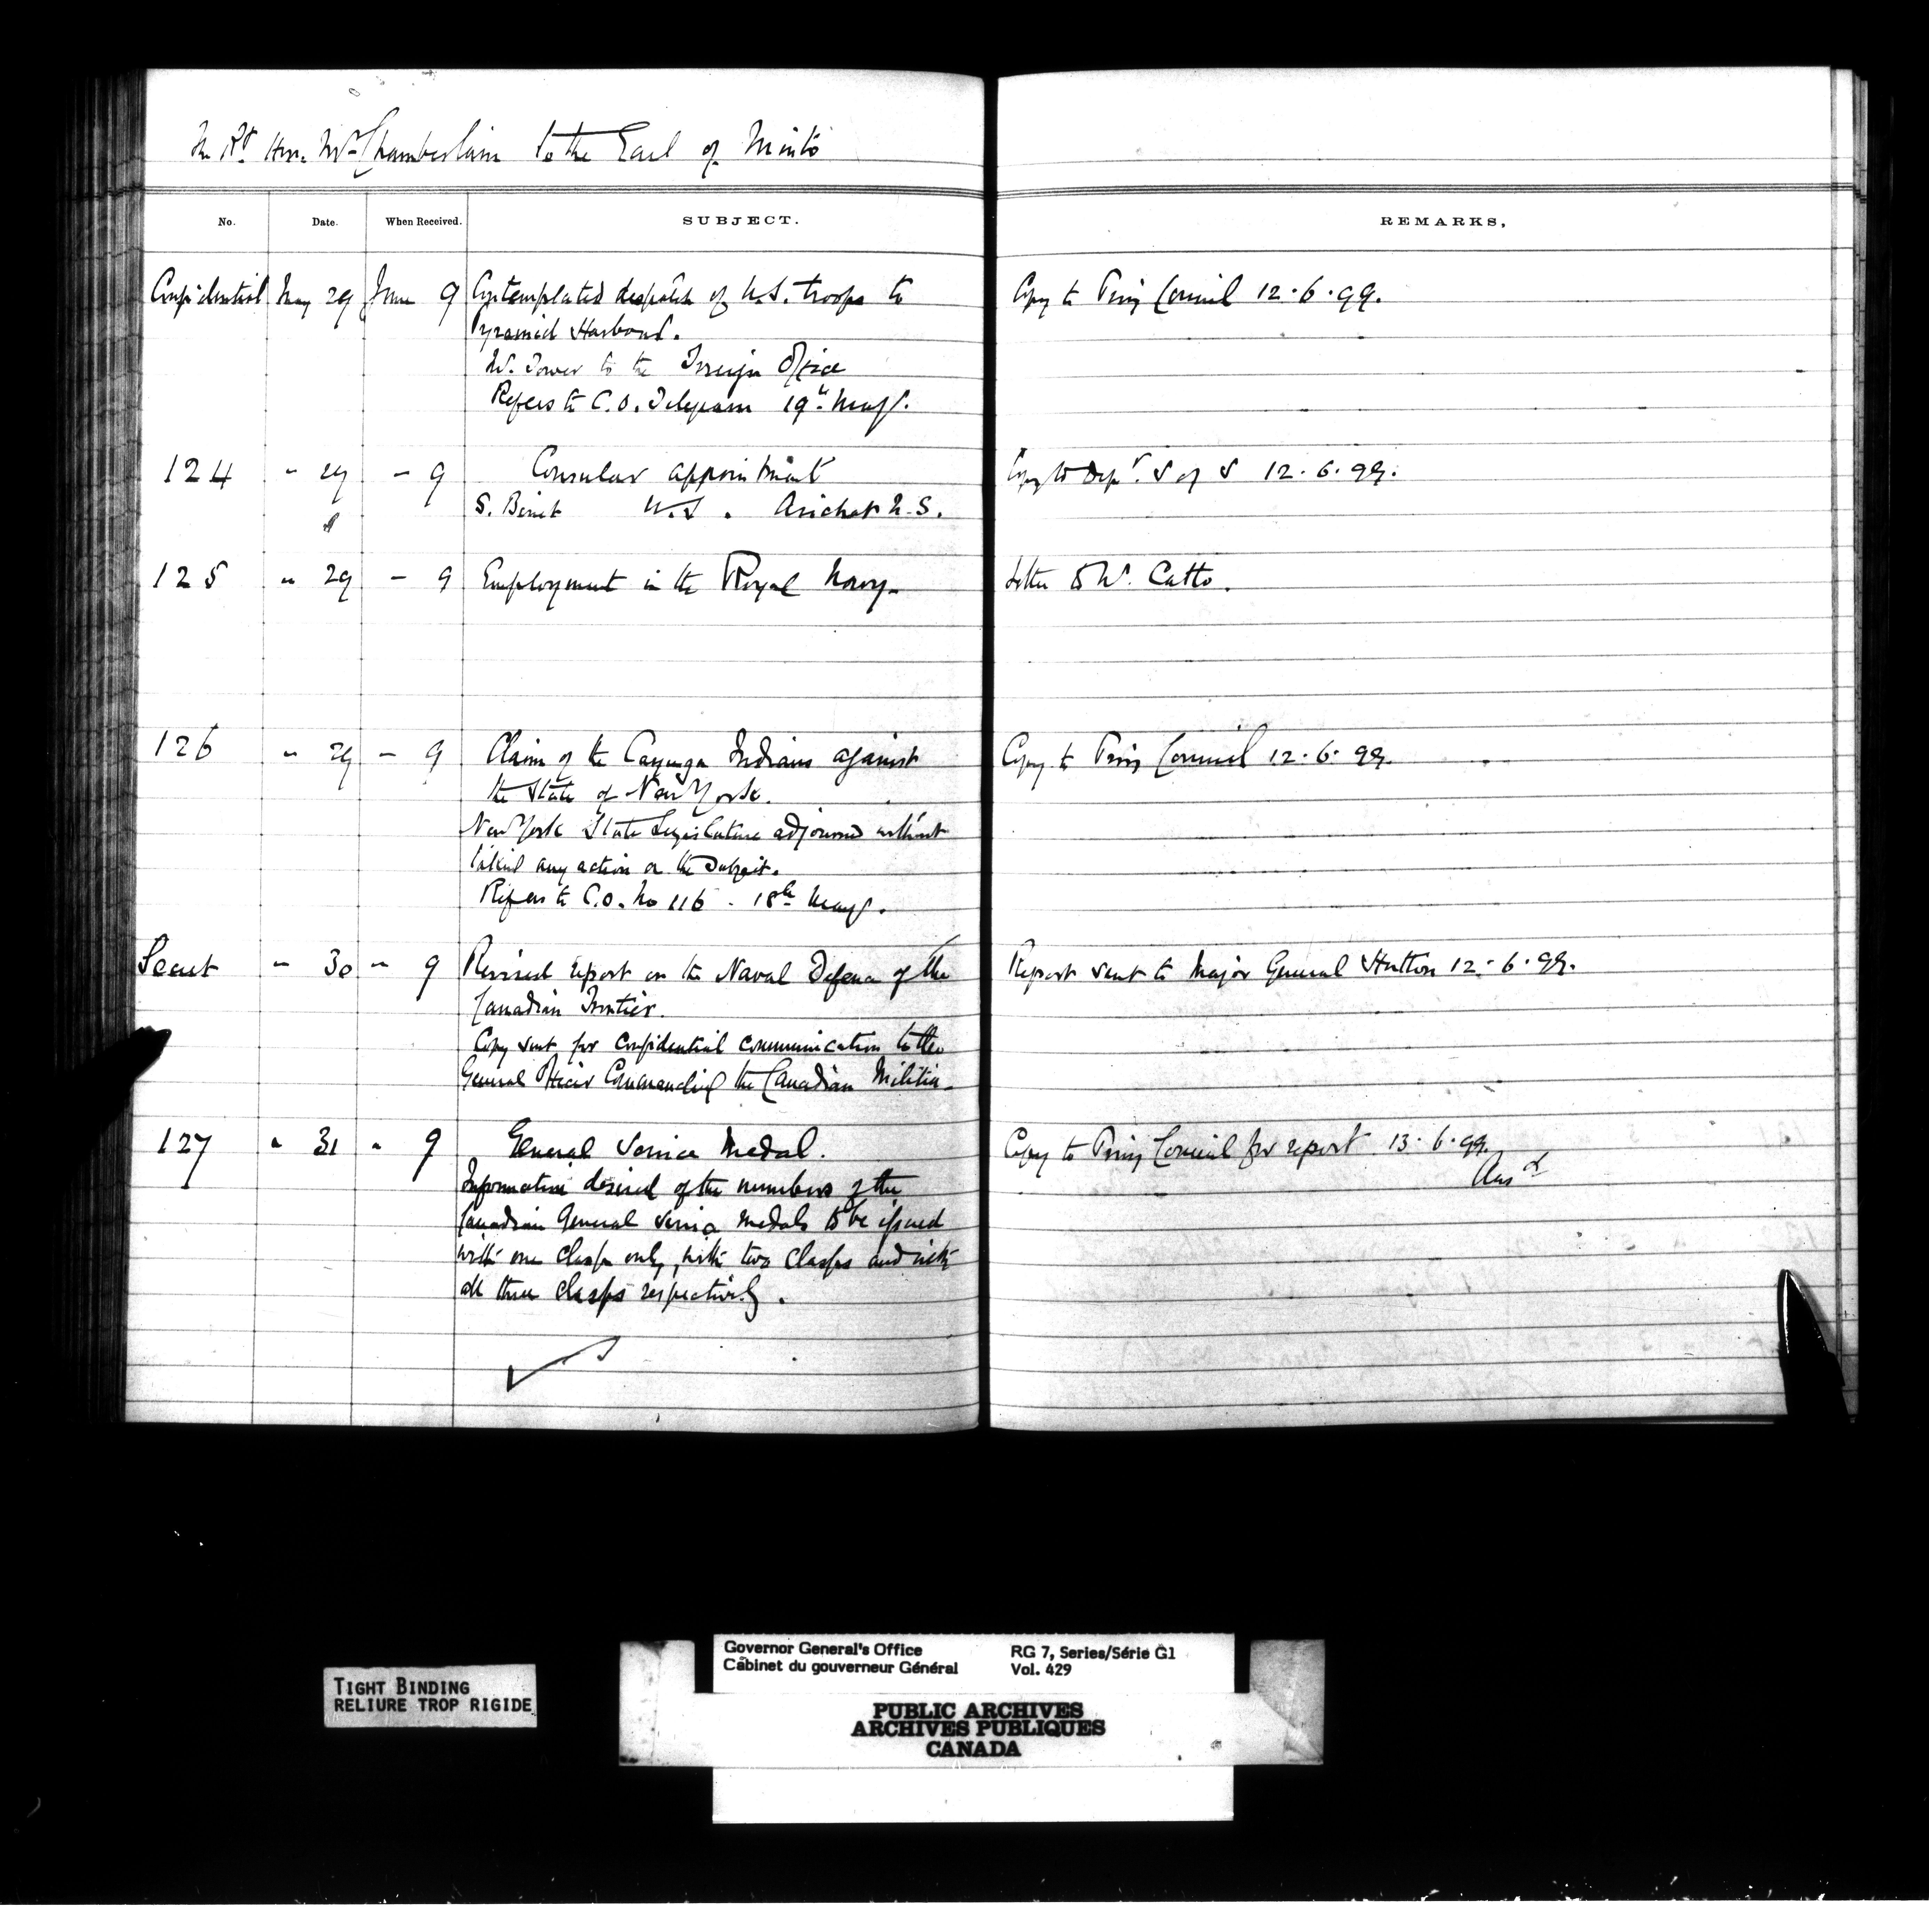 The Rt Hon. Mr Chamberlain to the Earl of Minto
No. Date. When Received. SUBJECT. REMARKS,
Confidential May 29 June 9 Contemplated despatch of U.S. troops to Copy to Privy Council 12.6.99.
Pyramid Harbour.
Mr. Tower to the Foreign Office
Refers to C.O. Telegram 19th May/.
124 " 29 - 9 Consular appointment Copy to Dept. S of S 12.6.99.
S. Binet U.S. Arichat N.S.
125 " 29 - 9 Employment in the Royal Navy. Letter to Mr. Catto.
126 " 29 - 9 Claim of the Cayuga Indians against Copy to Privy Council 12.6.99.
the State of New York.
New York State Legislature adjourned without
taking any action on the subject.
Refers to C.O. No 116 - 18th May/.
Secret " 30 " 9 Revised report on the Naval Defence of the Report sent to Major General Hutton 12.6.99.
Canadian Frontier.
Copy sent for confidential communication to the
General Officer Commanding the Canadian Militia.
127 " 31 " 9 General Service Medal. Copy to Privy Council for report 13.6.99.
Ansd
Information desired of the numbers of the
Canadian General Service Medals to be issued
with one clasp only, with two clasps and with
all three clasps respectively.
TIGHT BINDING
RELIURE TROP RIGIDE
Governor General's Office RG 7, Series/Série G1
Cabinet du gouverneur Général Vol. 429
PUBLIC ARCHIVES
ARCHIVES PUBLIQUES
CANADA